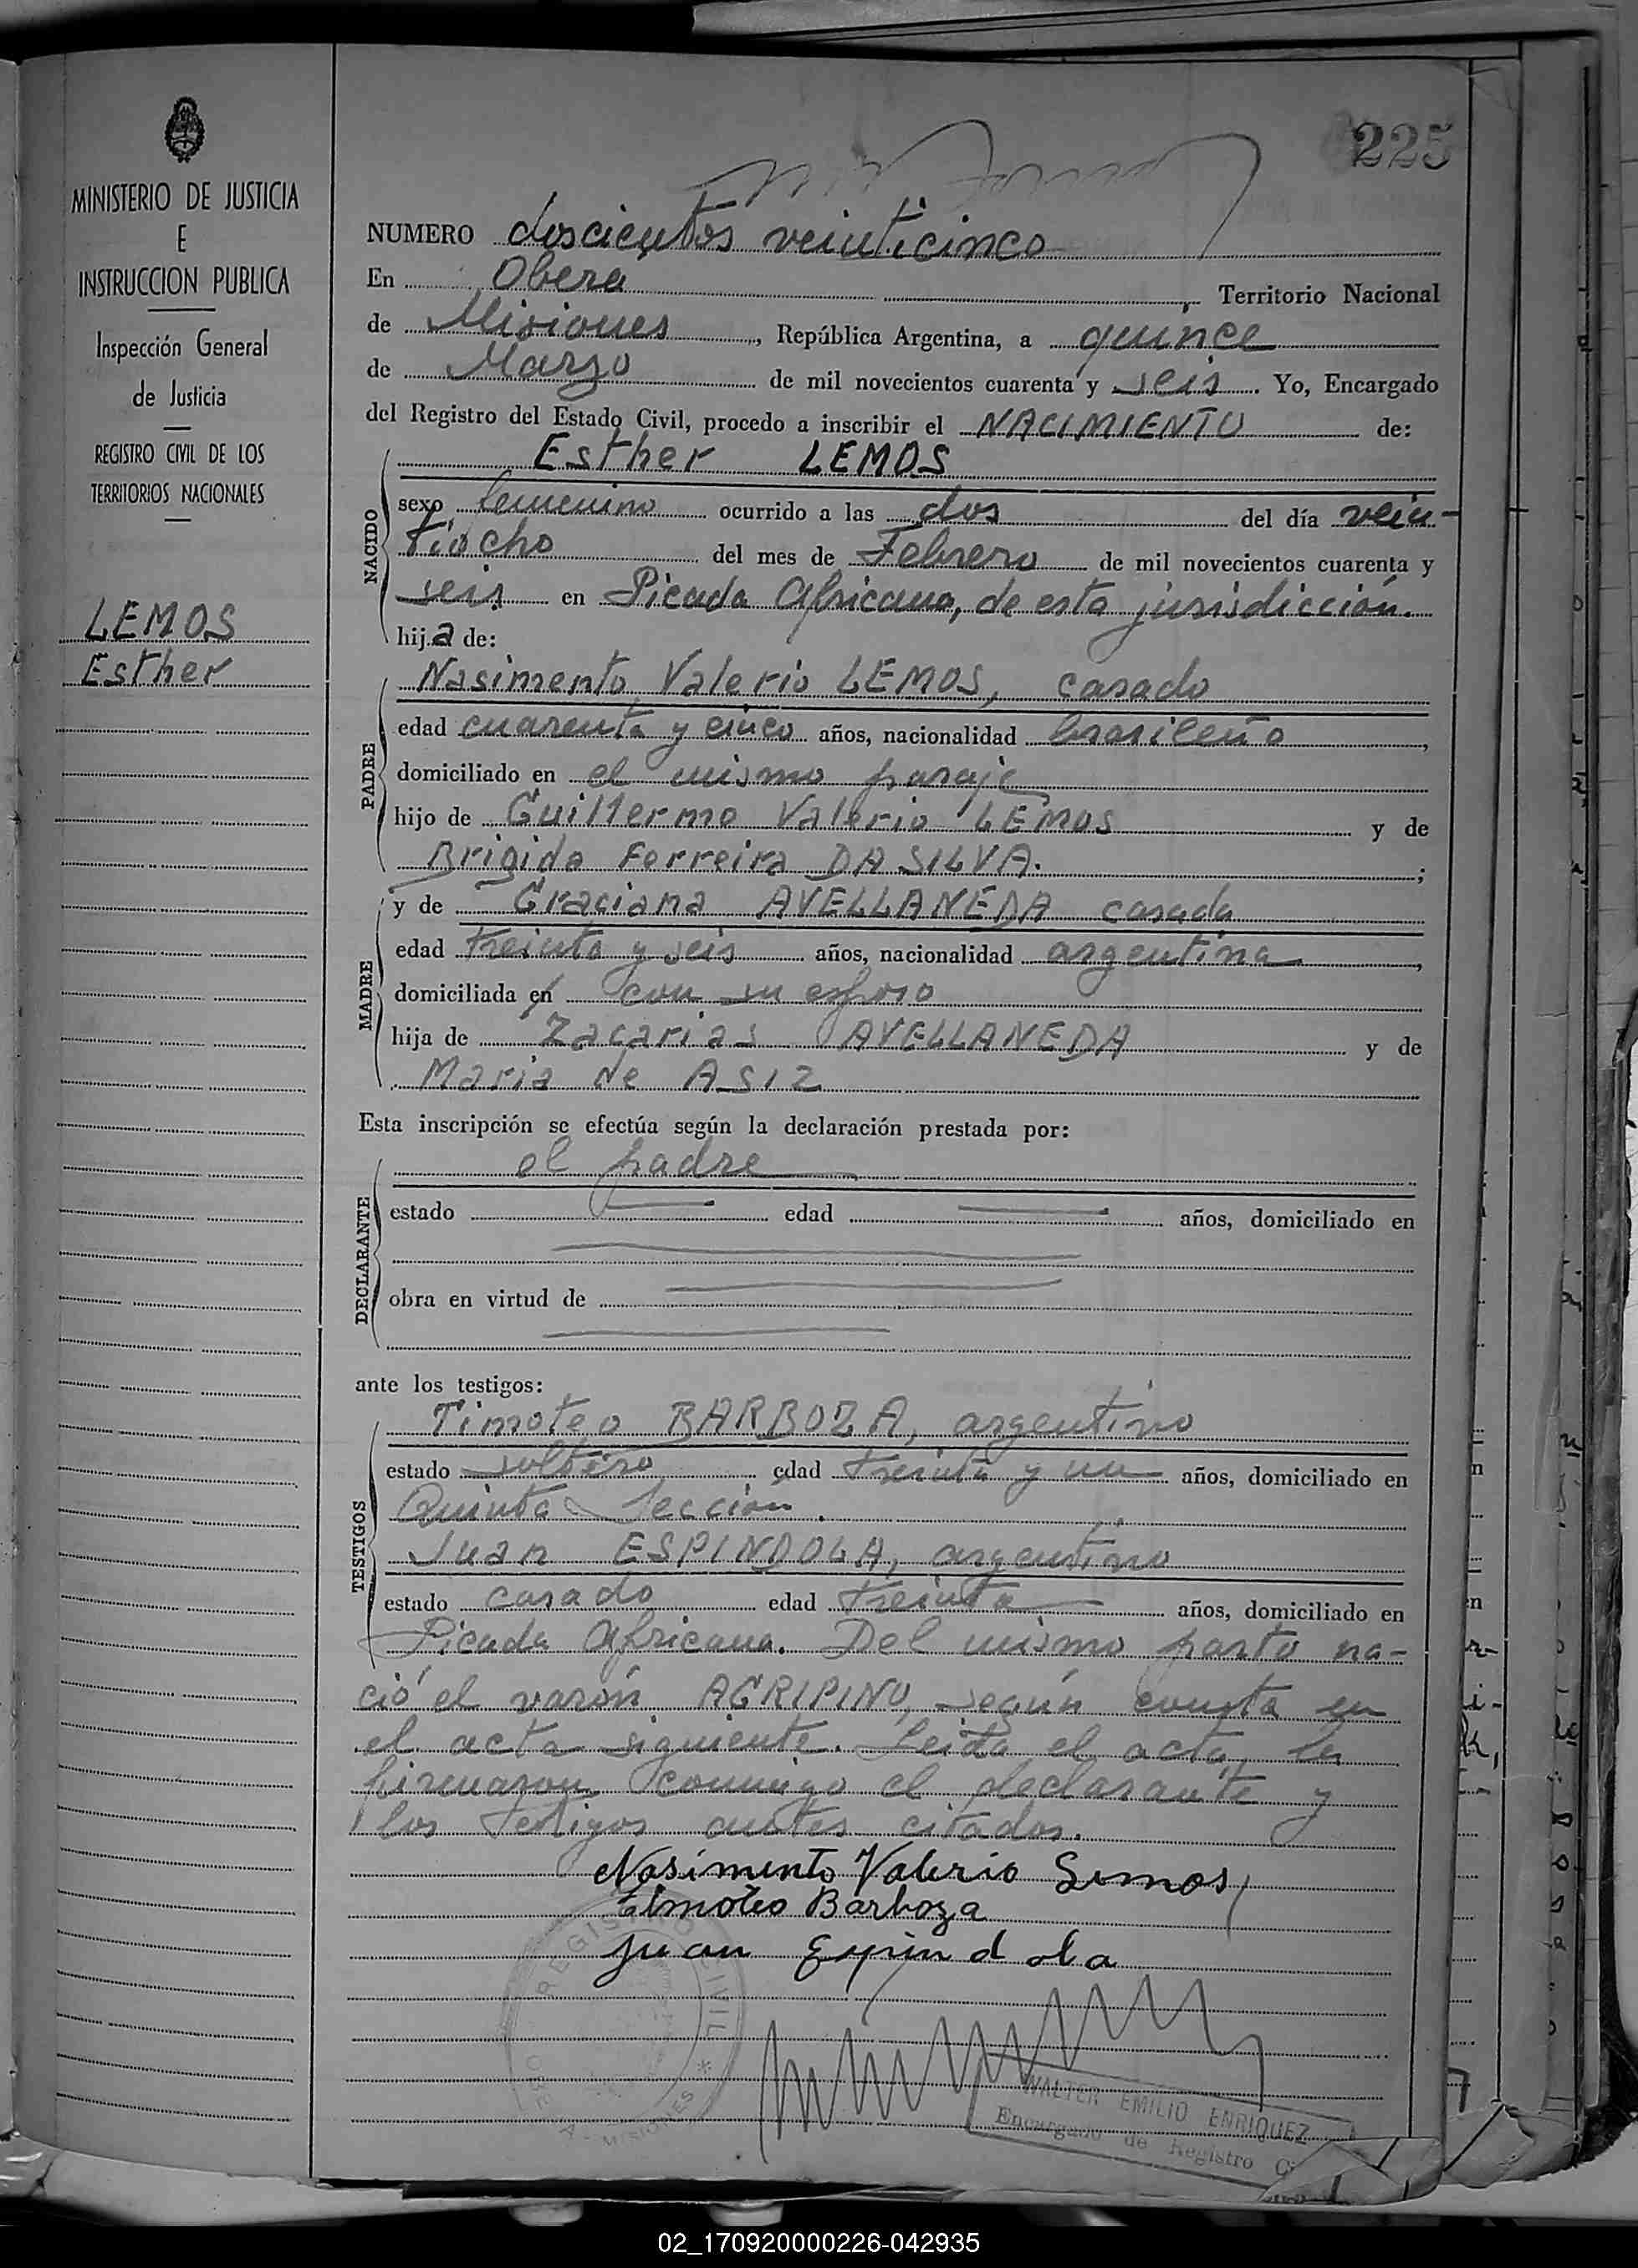 MINISTERIO DE JUSTICIA
E
INSTRUCCION PUBLICA
Inspección General
de Justicia
REGISTRO CIVIL DE LOS
TERRITORIOS NACIONALES
LEMOS
Esther
225
NUMERO doscientos veinticinco
En Obera, Territorio Nacional
de Misiones, República Argentina, a quince
de Marzo de mil novecientos cuarenta y seis. Yo, Encargado
del Registro del Estado Civil, procedo a inscribir el NACIMIENTO de:
Esther LEMOS
NACIDO
sexo femenino ocurrido a las dos del día vein-
tiocho del mes de Febrero de mil novecientos cuarenta y
seis en Picada Africana, de esta jurisdicción.
hija de:
PADRE
Nasimento Valerio LEMOS, casado
edad cuarenta y cinco años, nacionalidad brasileño,
domiciliado en el mismo paraje
hijo de Guillermo Valerio LEMOS y de
Brigida Ferreira DA SILVA.;
MADRE
y de Graciana AVELLANEDA casada
edad treinta y seis años, nacionalidad argentina,
domiciliada en con su esposo
hija de Zacarias AVELLANEDA y de
Maria de ASIZ
Esta inscripción se efectúa según la declaración prestada por:
DECLARANTE
el padre
estado edad años, domiciliado en
obra en virtud de
ante los testigos:
TESTIGOS
Timoteo BARBOZA, argentino
estado soltero edad treinta y un años, domiciliado en
Quinta Sección.
Juan ESPINDOLA, argentino
estado casado edad treinta años, domiciliado en
Picada Africana. Del mismo parto na-
ció el varón AGRIPINO, según consta en
el acta siguiente. Leida el acta, la
firmaron conmigo el declarante y
los testigos antes citados.
Nasimento Valerio Lemos
Timoteo Barboza
Juan Espindola
REGISTRO CIVIL
OBERA - MISIONES *
WALTER EMILIO ENRIQUEZ
Encargado de Registro
02_170920000226-042935